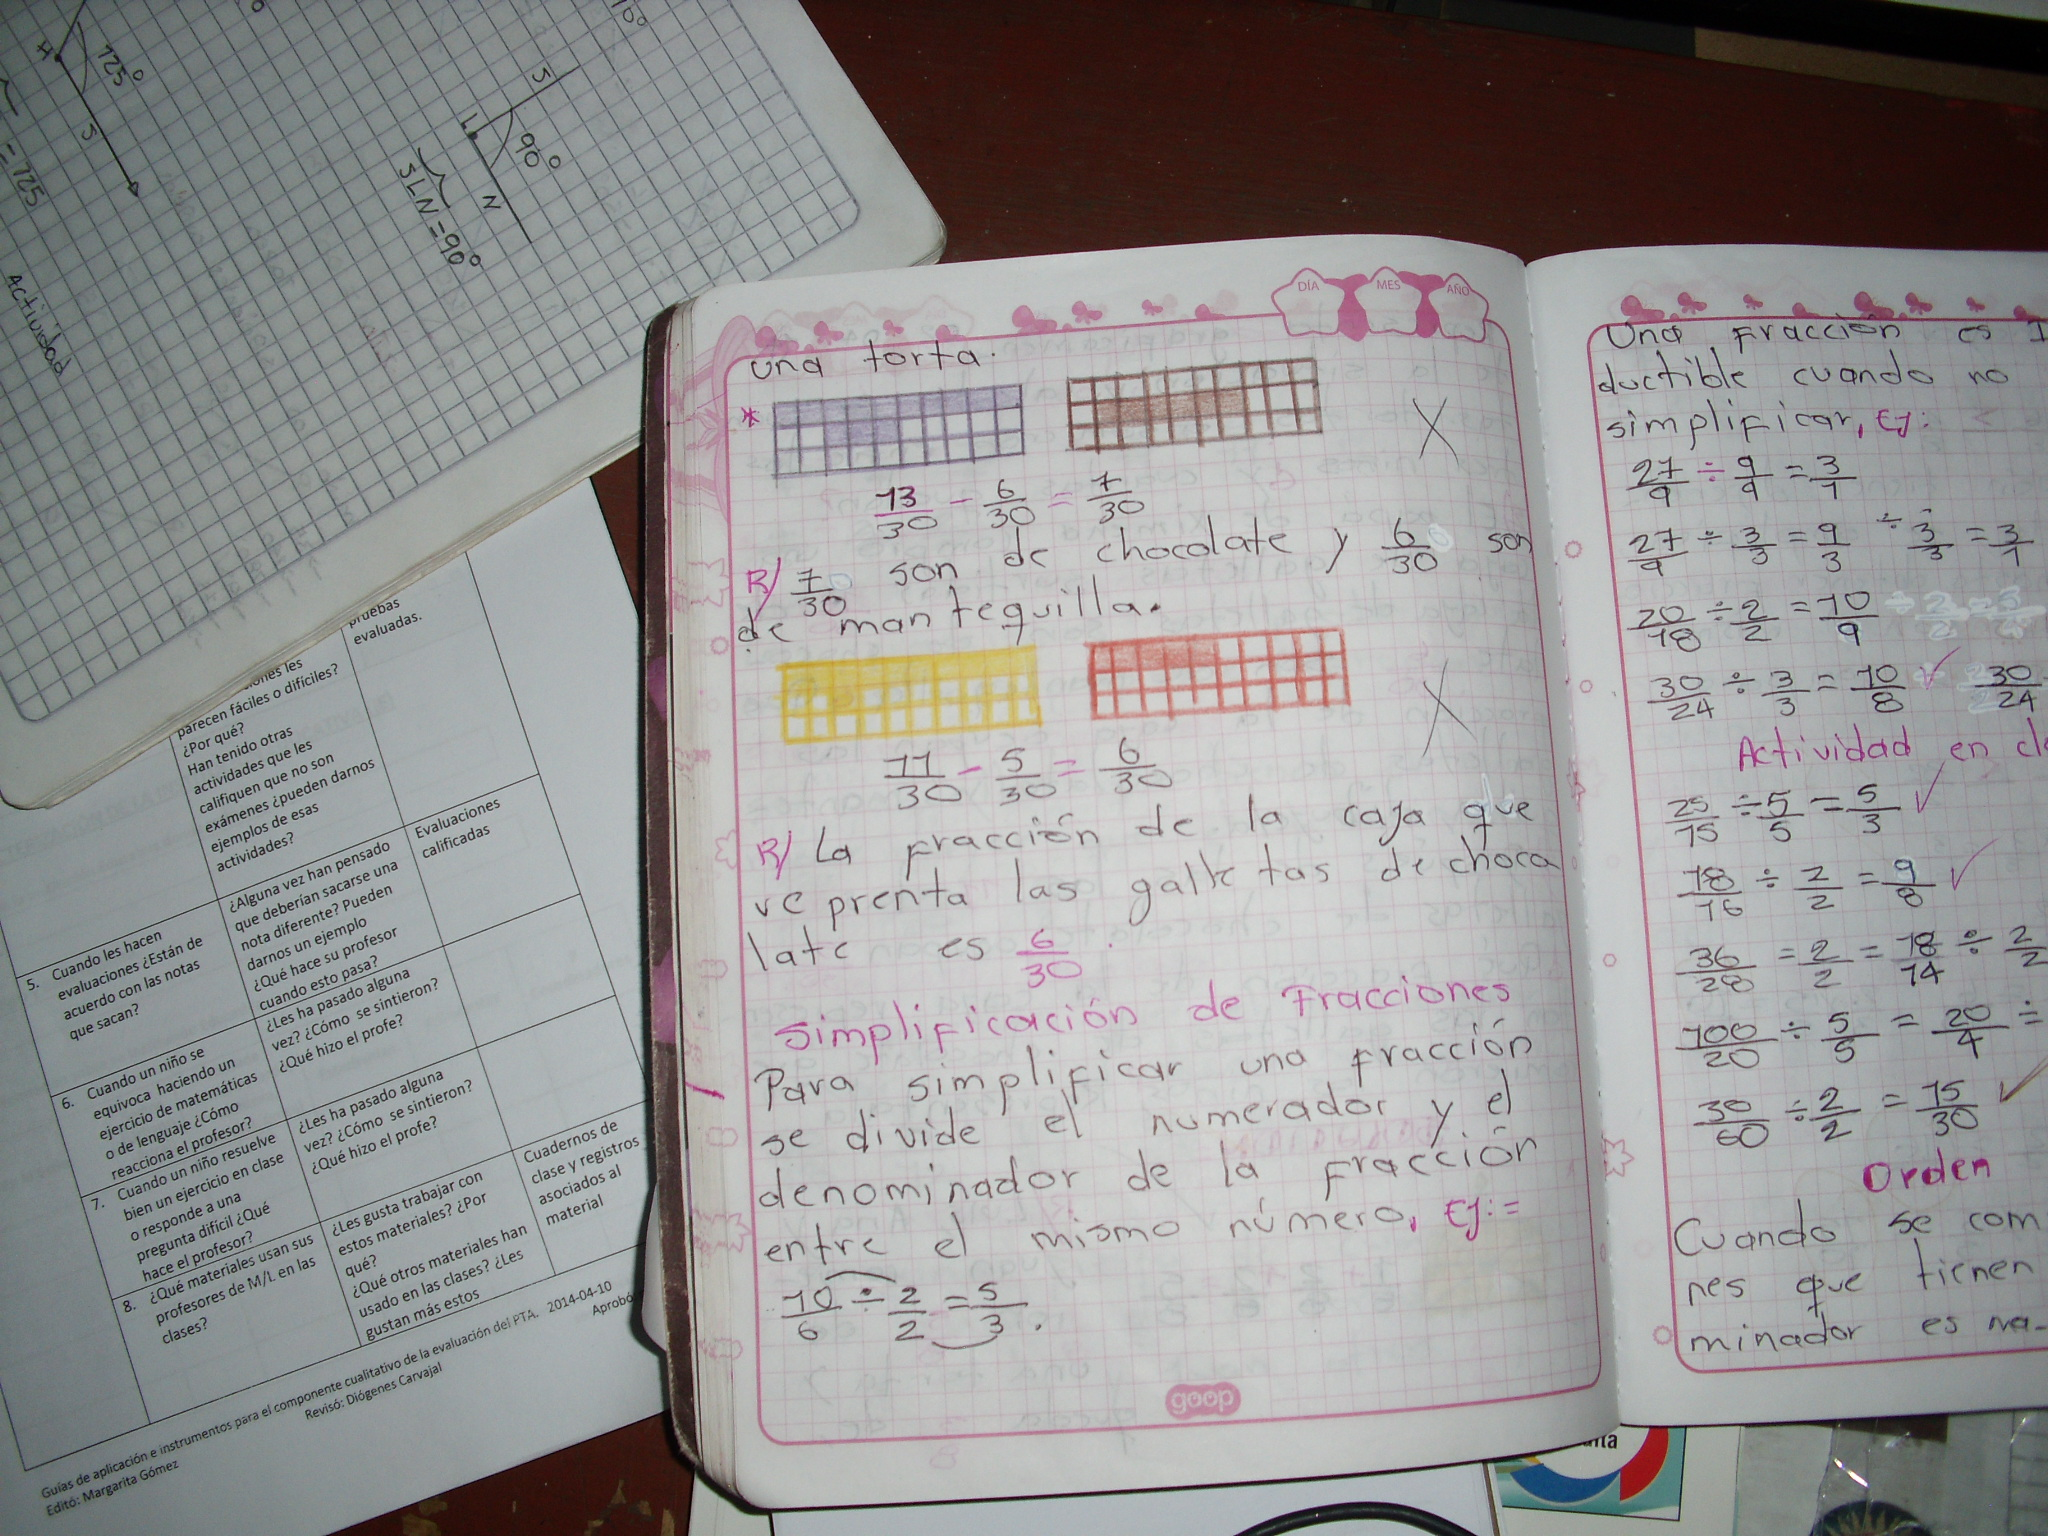 H
125°
S
= 125
Actividad
S
L
90°
N
SLN = 90°
pruebas
evaluadas.
parecen fáciles o difíciles?
¿Por qué?
Han tenido otras
actividades que les
califiquen que no son
exámenes ¿pueden darnos
ejemplos de esas
actividades?
5. Cuando les hacen
evaluaciones ¿Están de
acuerdo con las notas
que sacan?
¿Alguna vez han pensado
que deberían sacarse una
nota diferente? Pueden
darnos un ejemplo
¿Qué hace su profesor
cuando esto pasa?
Evaluaciones
calificadas
6. Cuando un niño se
equivoca haciendo un
ejercicio de matemáticas
o de lenguaje ¿Cómo
reacciona el profesor?
¿Les ha pasado alguna
vez? ¿Cómo se sintieron?
¿Qué hizo el profe?
7. Cuando un niño resuelve
bien un ejercicio en clase
o responde a una
pregunta difícil ¿Qué
hace el profesor?
¿Les ha pasado alguna
vez? ¿Cómo se sintieron?
¿Qué hizo el profe?
8. ¿Qué materiales usan sus
profesores de M/L en las
clases?
¿Les gusta trabajar con
estos materiales? ¿Por
qué?
¿Qué otros materiales han
usado en las clases? ¿Les
gustan más estos
Cuadernos de
clase y registros
asociados al
material
Guías de aplicación e instrumentos para el componente cualitativo de la evaluación del PTA. 2014-04-10
Editó: Margarita Gómez
Revisó: Diógenes Carvajal
Aprobó
DÍA MES AÑO
una torta.
*
13/30 - 6/30 = 7/30
R/ 7/30 son de chocolate y 6/30 son
de mantequilla.
11/30 - 5/30 = 6/30
R/ La fracción de la caja que
re prenta las galletas de choco
late es 6/30.
Simplificación de Fracciones
Para simplificar una fracción
se divide el numerador y el
denominador de la fracción
entre el mismo número, Ej:=
10/6 ÷ 2/2 = 5/3.
goop
Una fracción es I
ductible cuando no
simplificar, Ej:
27/9 ÷ 9/9 = 3/1
27/9 ÷ 3/3 = 9/3 ÷ 3/3 = 3/1
20/18 ÷ 2/2 = 10/9
30/24 ÷ 3/3 = 10/8 30/24
Actividad en cl
25/15 ÷ 5/5 = 5/3
18/16 ÷ 2/2 = 9/8
36/28 = 2/2 = 18/14 ÷ 2/2
100/20 ÷ 5/5 = 20/4 ÷
30/60 ÷ 2/2 = 15/30
Orden
Cuando se com
nes que tienen
minador es na-